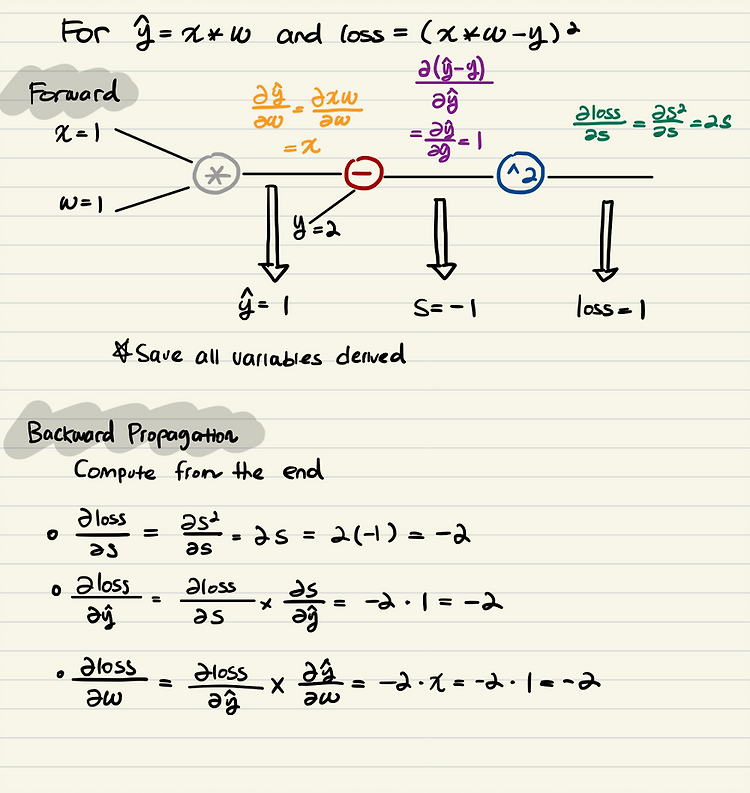 For ŷ = x * w and loss = (x * w - y)²
Forward
x = 1
w = 1
*
∂ŷ/∂w = ∂xw/∂w
= x
−
y = 2
∂(ŷ-y)/∂ŷ
= ∂ŷ/∂ŷ = 1
^2
∂loss/∂s = ∂s²/∂s = 2s
ŷ = 1
S = -1
loss = 1
☆ Save all variables derived
Backward Propagation
Compute from the end
∘ ∂loss/∂s = ∂s²/∂s = 2s = 2(-1) = -2
∘ ∂loss/∂ŷ = ∂loss/∂s × ∂s/∂ŷ = -2 · 1 = -2
∘ ∂loss/∂w = ∂loss/∂ŷ × ∂ŷ/∂w = -2 · x = -2 · 1 = -2